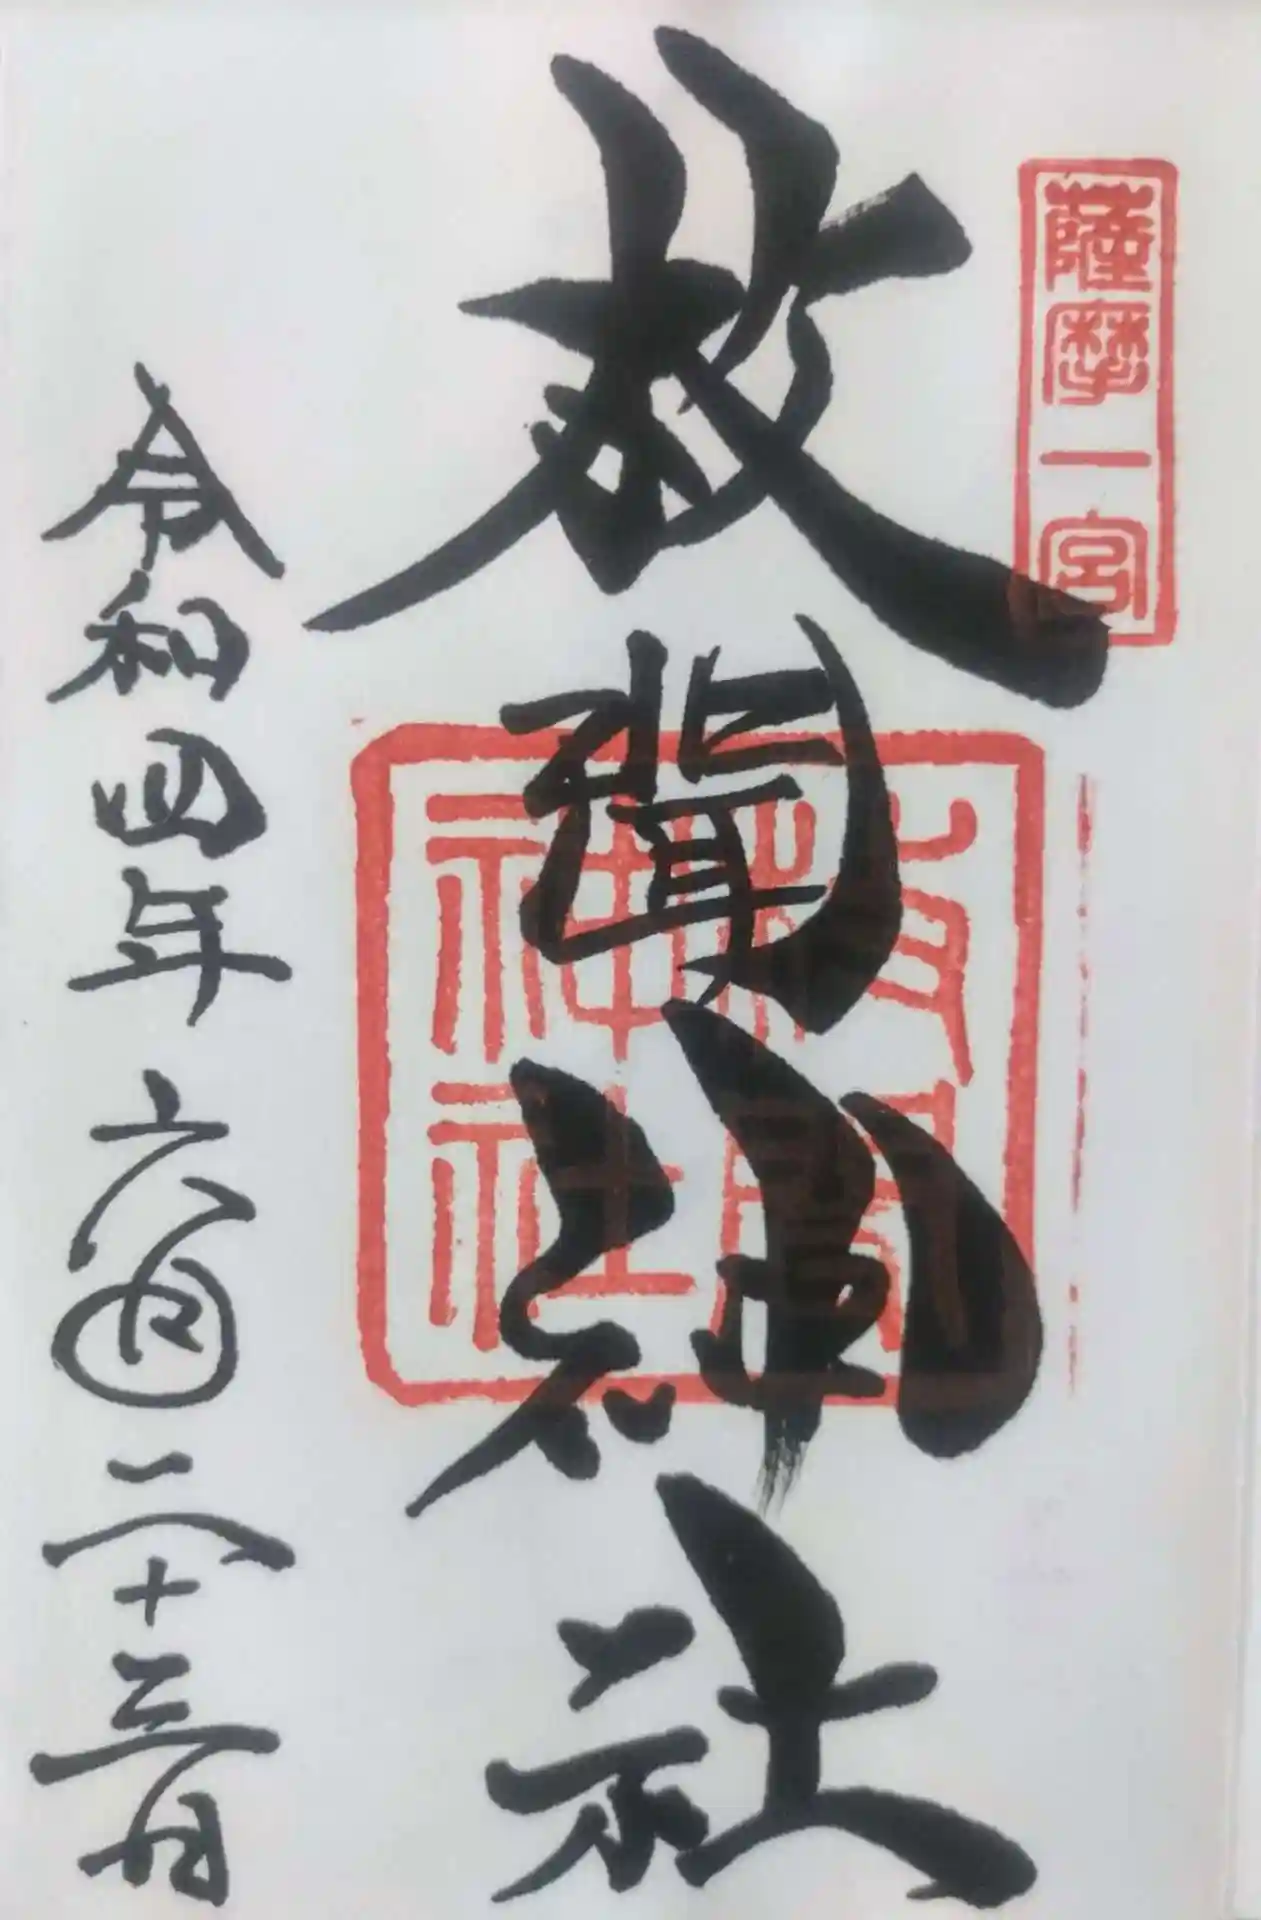 薩摩一宮
枚聞神社
枚聞神社
令和四年六月二十三日